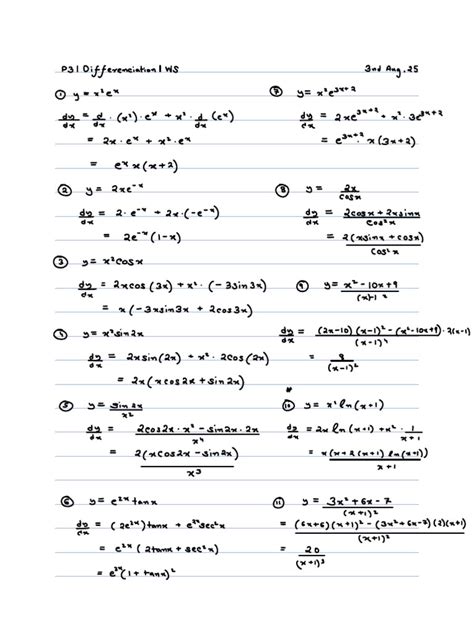 P3 | Differenciation | WS
3nd Aug. 25
① y = x²eˣ
dy/dx = d/dx · (x²) · eˣ + x² · d/dx (eˣ)
= 2x · eˣ + x² · eˣ
= eˣ x (x+2)
② y = 2xe⁻ˣ
dy/dx = 2 · e⁻ˣ + 2x · (-e⁻ˣ)
= 2e⁻ˣ (1-x)
③ y = x²cos3x
dy/dx = 2xcos(3x) + x² · (-3sin3x)
= x(-3xsin3x + 2cos3x)
④ y = x²sin2x
dy/dx = 2xsin(2x) + x² · 2cos(2x)
= 2x(xcos2x + sin2x)
⑤ y = sin2x / x²
dy/dx = (2cos2x · x² - sin2x · 2x) / x⁴
= 2(xcos2x - sin2x) / x³
⑥ y = e²ˣtanx
dy/dx = (2e²ˣ)tanx + e²ˣsec²x
= e²ˣ (2tanx + sec²x)
= e²ˣ (1 + tanx)²
⑦ y = x²e³ˣ⁺²
dy/dx = 2xe³ˣ⁺² + x² · 3e³ˣ⁺²
= e³ˣ⁺² · x(3x+2)
⑧ y = 2x / cosx
dy/dx = (2cosx + 2xsinx) / cos²x
= 2(xsinx + cosx) / cos²x
⑨ y = (x² - 10x + 9) / (x-1)²
dy/dx = ((2x-10)(x-1)² - (x²-10x+9) · 2(x-1)) / (x-1)⁴
= 8 / (x-1)²
⑩ y = x² ln(x+1)
dy/dx = 2x ln(x+1) + x² · 1/(x+1)
= x(x+2(x+1) ln(x+1)) / (x+1)
⑪ y = (3x² + 6x - 7) / (x+1)²
= ((6x+6)(x+1)² - (3x²+6x-7)(2)(x+1)) / (x+1)⁴
= 20 / (x+1)³